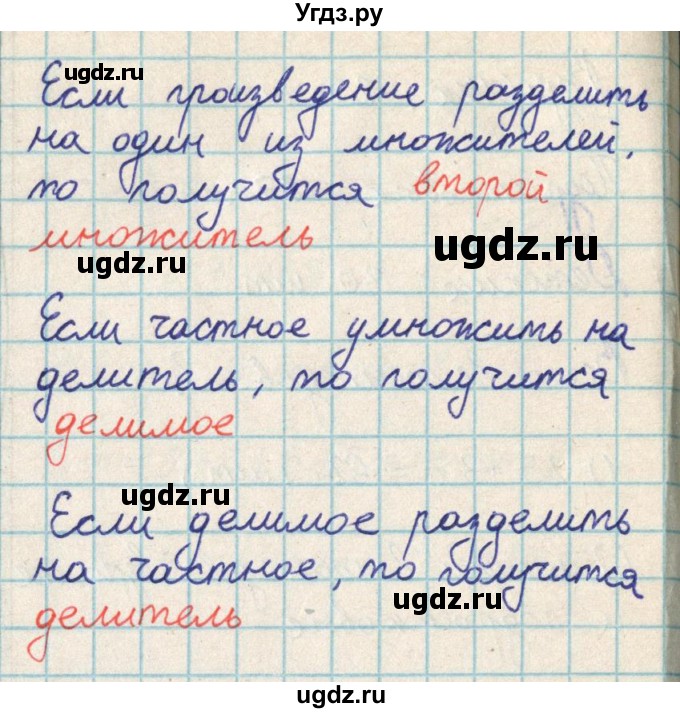 Угдз.ру
ugdz.ru
Если произведение разделить
на один из множителей,
то получится второй
множитель
ugdz.ru
ugdz.ru
Если частное умножить на
делитель, то получится
делимое
ugdz.ru
Если делимое разделить
на частное, то получится
ugdz.ru
делитель
ugdz.ru